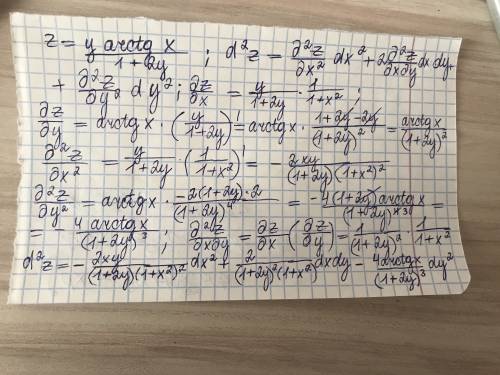 z = y arctg x / (1+2y) ; d²z = ∂²z/∂x² dx² + 2 ∂²z/∂x∂y dx dy +
+ ∂²z/∂y² dy² ; ∂z/∂x = y/(1+2y) · 1/(1+x²) ;
∂z/∂y = arctg x · (y/(1+2y))' = arctg x · (1+2y-2y)/(1+2y)² = arctg x/(1+2y)²
∂²z/∂x² = y/(1+2y) · (1/(1+x²))' = - 2xy/((1+2y)(1+x²)²)
∂²z/∂y² = arctg x · -2(1+2y)·2/(1+2y)⁴ = -4(1+2y) arctg x/(1+2y)⁴³ =
= - 4 arctg x/(1+2y)³ ; ∂²z/∂x∂y = ∂z/∂x · (∂z/∂y) = 1/(1+2y)² · 1/(1+x²)
d²z = - 2xy/((1+2y)(1+x²)²) dx² + 2/((1+2y)²(1+x²)) dx dy - 4 arctg x/(1+2y)³ dy²